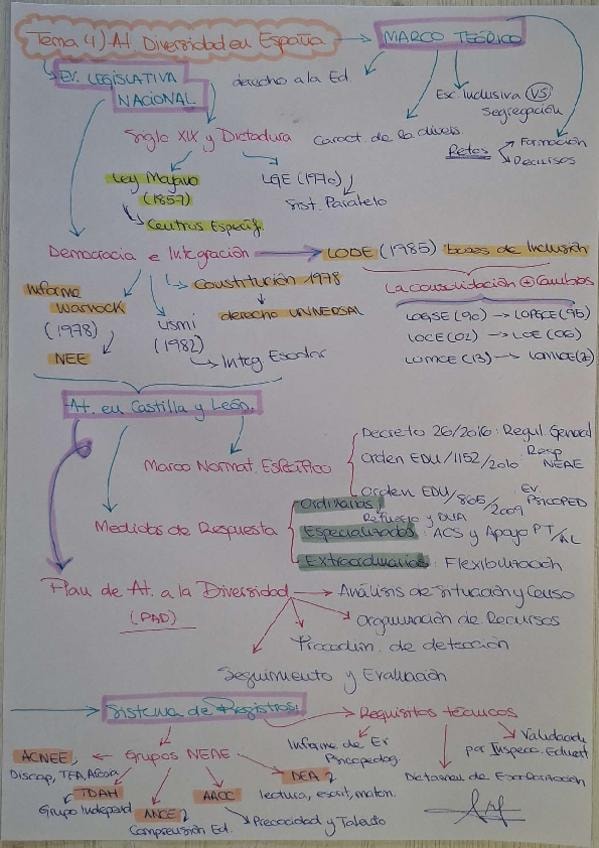 Tema 4) At. Diversidad en España
MARCO TEÓRICO
EV. LEGISLATIVA
NACIONAL
derecho a la Ed.
Esc. Inclusiva VS
Segregación
Caract. de la divers.
Retos
Formación
Recursos
Siglo XIX y Dictadura
Ley Moyano
(1857)
Centros Específ.
LGE (1970)
Sist. Paralelo
Democracia e Integración
LODE (1985) bases de Inclusión
Informe
Warnock
(1978)
NEE
LISMI
(1982)
Integ Escolar
Constitución 1978
derecho UNIVERSAL
La consolidación + Cambios
LOGSE (90) → LOPGCE (95)
LOCE (02) → LOE (06)
LOMCE (13) →
At. en Castilla y León.
Marco Normat. Específico
Decreto 26/2016: Regul. General
Orden EDU/1152/2010: Resp
NEAE
Orden EDU/865/2009 Ev
PSICOPED
Medidas de Respuesta
Ordinarias:
Refuerzo y DUA
Especializadas: ACS y Apoyo PT/AL
Extraordinarias: Flexibilización
Plan de At. a la Diversidad
(PAD)
Análisis de Situación y Censo
Organización de Recursos
Procedim. de detección
Seguimiento y Evaluación
Sistema de Registros:
Requisitos técnicos
Informe de Ev
Psicopedag.
Validación
por Inspecc. Educat
Dictamen de Escolarización
Grupos NEAE
ACNEE,
Discap, TEA,
TDAH
Grupo Independ
ANCE
Comprensión Ed.
AACC
Precocidad y Talento
DEA
lectura, escrit, matem.